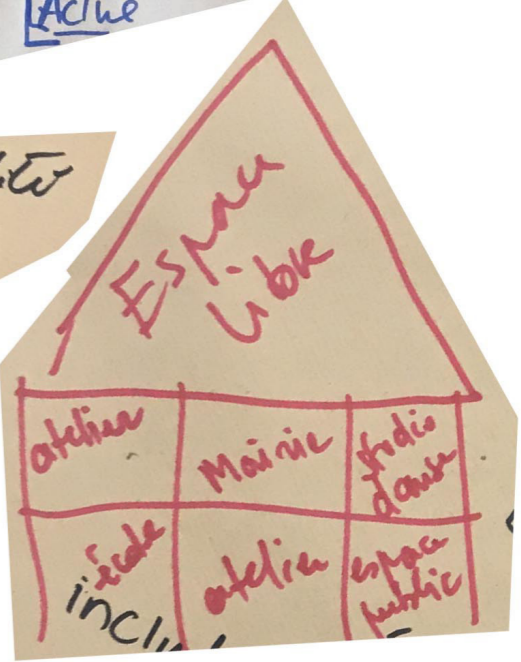 Active
Espace
Libre
atelier
Mairie
studio
danse
école
atelier
espace
public